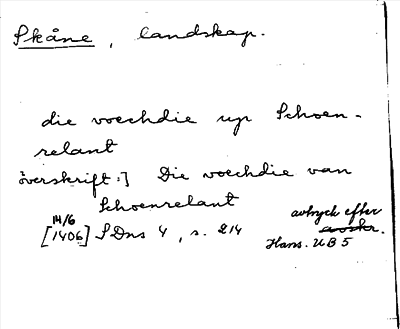 Skåne, landskap.
die voechdie up Schoen-
relant
överskrift:] Die voechdie van
Schoenrelant
14/6
[1406] SDns 4, s. 214
avtryck efter
avskr.
Hans. UB 5